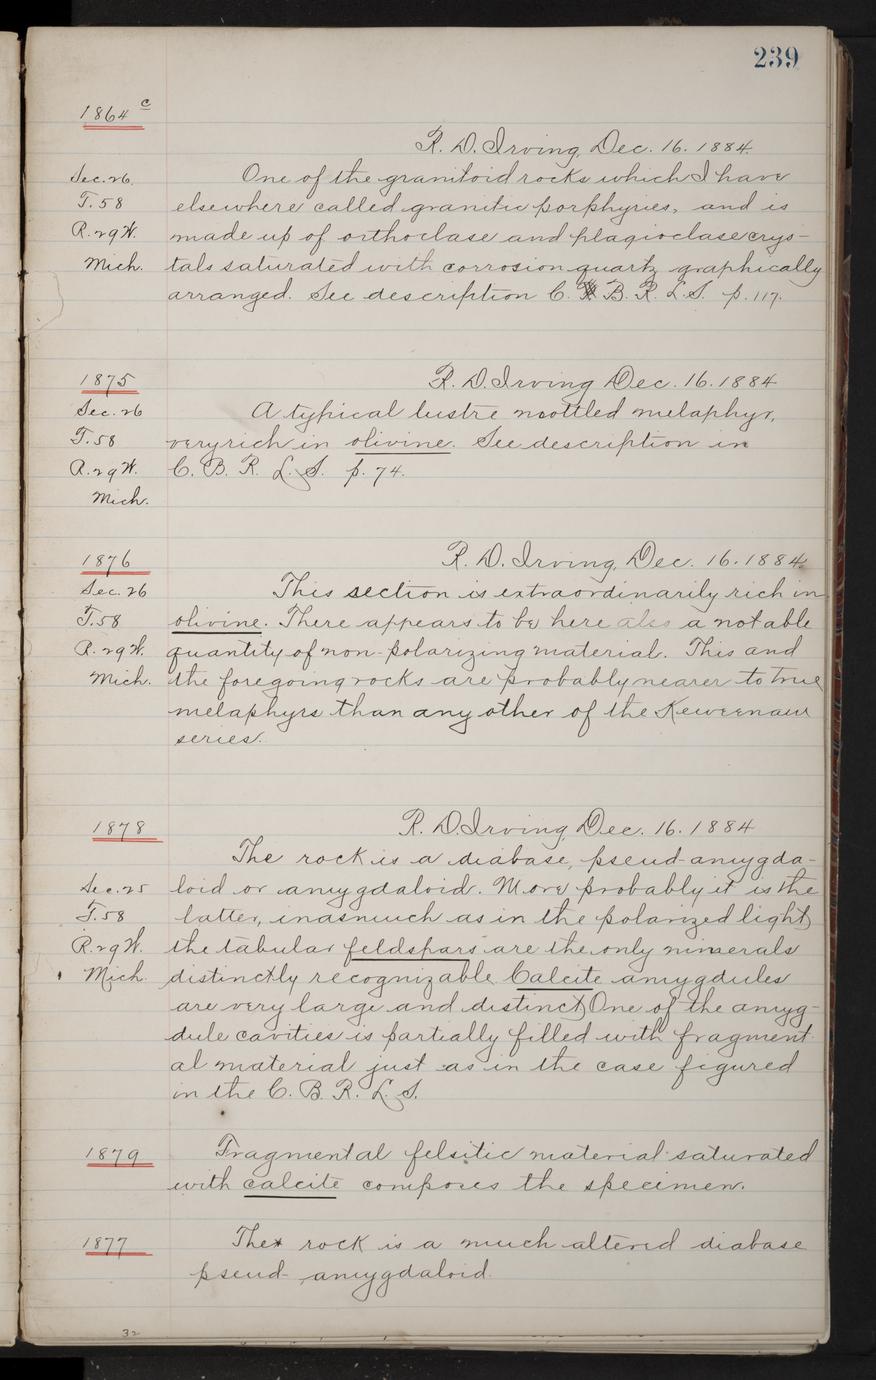 239
1864 c
R. D. Irving, Dec. 16. 1884.
Sec. 26. One of the granitoid rocks which I have
T. 58 elsewhere called granitic porphyries, and is
R. 29 W. made up of orthoclase and plagioclase crys-
Mich. tals saturated with corrosion quartz graphically
arranged. See description C. B. R. L. S. p. 117.
1875 R. D. Irving Dec. 16. 1884
Sec. 26 A typical lustre mottled melaphyr,
T. 58 very rich in olivine. See description in
R. 29 W. C. B. R. L. S. p. 74.
Mich.
1876 R. D. Irving, Dec. 16. 1884
Sec. 26 This section is extraordinarily rich in
T. 58 olivine. There appears to be here also a notable
R. 29 W. quantity of non-polarizing material. This and
Mich. the foregoing rocks are probably nearer to true
melaphyrs than any other of the Keweenaw
series.
1878 R. D. Irving, Dec. 16. 1884
The rock is a diabase, pseud-amygda-
Sec. 25 loid or amygdaloid. More probably it is the
T. 58 latter, inasmuch as in the polarized light)
R. 29 W. the tabular feldspars are the only minerals
Mich. distinctly recognizable. Calcite amygdules
are very large and distinct) One of the amyg-
dule cavities is partially filled with fragment
al material just as in the case figured
in the C. B. R. L. S.
1879 Fragmental felsitic material saturated
with calcite composes the specimen.
1877 The rock is a much altered diabase
pseud-amygdaloid.
32